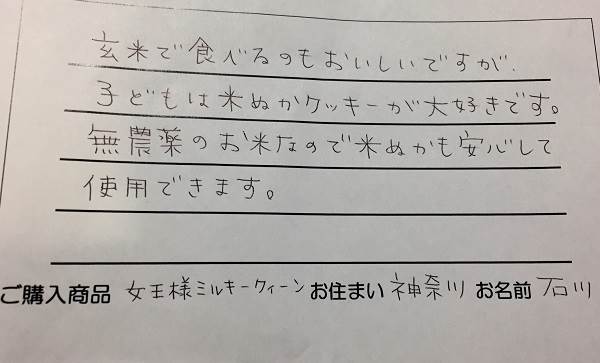 玄米で食べるのもおいしいですが、
子どもは米ぬかクッキーが大好きです。
無農薬のお米なので米ぬかも安心して
使用できます。
ご購入商品 女王様ミルキークィーン お住まい 神奈川 お名前 石川